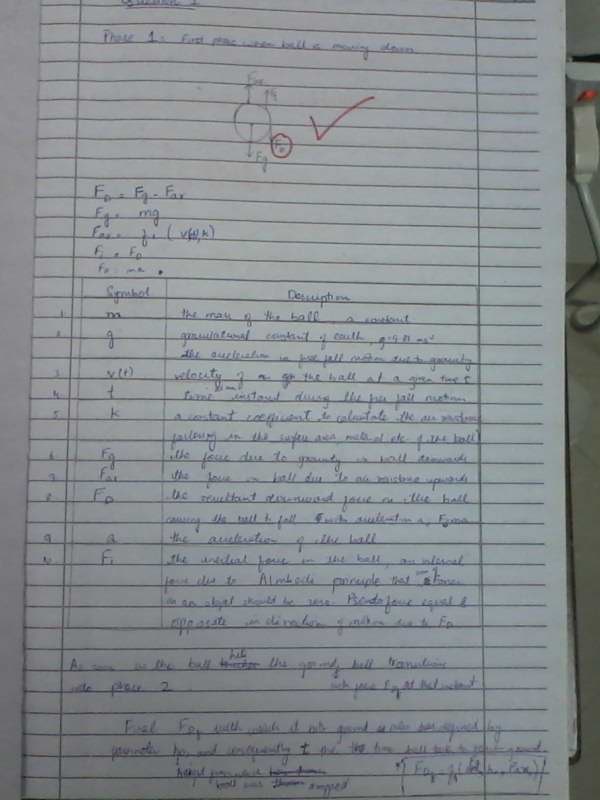 Question 1
Phase 1: First phase when ball is moving down
Far
Fi
FD
Fg
FD = Fg - Far
Fg = mg
Far = f1 (v(t), k)
Fi = FD
FD = ma
Symbol Description
1 m the mass of the ball, a constant
2 g gravitational constant of earth, g=9.81 ms⁻²
the acceleration in free fall motion due to gravity
3 v(t) velocity of the ball at a given time t
4 t time instant during the free fall motion
5 k a constant coefficient to calculate the air resistance
factoring in the surface area, material etc. of the ball
6 Fg the force due to gravity in ball downwards
7 Far the force in ball due to air resistance upwards
8 FD the resultant downward force on the ball
causing the ball to fall with acceleration a, FD=ma
9 a the acceleration of the ball
10 Fi the inertial force in the ball, an internal
force due to principle that forces
in an object should be zero. Pseudo force equal &
opposite in direction of motion due to FD
As soon as the ball hits the ground, ball transitions
into phase 2. with force at that instant
Final FD with which it hits ground is also defined by
parameter and consequently t the time ball took to ground
height from where ball was dropped